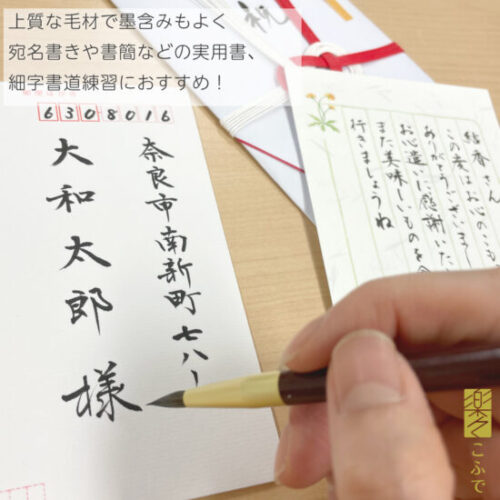 上質な毛材で墨含みもよく
宛名書きや書簡などの実用書、
細字書道練習におすすめ！
6308016
奈良市南新町七八ー
大和太郎様
祝
結香さん
この度はお心のこも
ありがとうございまし
お心遣いに感謝いた
また美味しいものを食
行きましょうね
楽々
こふで